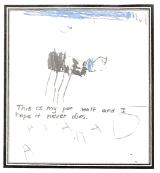 This is my pet wolf and I
hope it never dies.